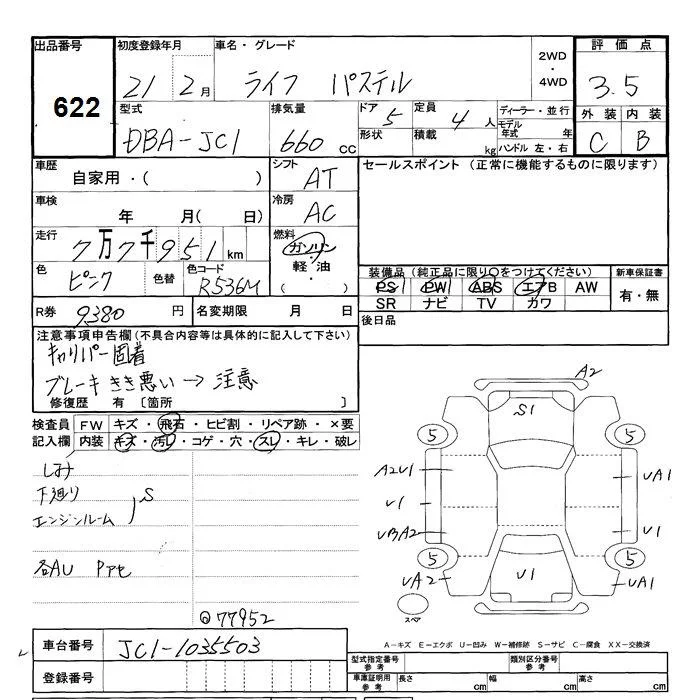 出品番号 初度登録年月 車名・グレード 2WD 評価点
622 21 2月 ライフ パステル ・ 4WD 3.5
型式 排気量 ドア 定員 ディーラー・並行 外装 内装
DBA-JC1 660 cc 5 4人 モデル年式 年 C B
形状 積載 kg ハンドル 左・右
車歴 シフト セールスポイント (正常に機能するものに限ります)
自家用・( ) AT
車検 冷房
年 月( 日) AC
走行 燃料
7万7千951km ガソリン
色 色替 色コード 軽油 装備品 (純正品に限り○をつけてください) 新車保証書
ピンク R536M ( ) PS PW ABS エアB AW 有・無
SR ナビ TV カワ
R券 9380円 名変期限 月 日 後日品
注意事項申告欄(不具合内容等は具体的に記入して下さい)
キャリパー固着
ブレーキきき悪い→注意
修復歴 有 〔箇所 〕
A2
S1
検査員 FW キズ・飛石・ヒビ割・リペア跡・×要
記入欄 内装 キズ・汚レ・コゲ・穴・スレ・キレ・破レ
5 5
しみ
A2U1 UA1
下廻り S
エンジンルーム
U1 U1
UBA2
5 5
各AU Pアセ
UA2 U1 UA1
スペア
77952
車台番号 JC1-1035503
A-キズ E-エクボ U-凹み W-補修跡 S-サビ C-腐食 XX-交換済
型式指定番号 参考 類別区分番号 参考
登録番号 車庫証明用 参考 長さ cm 幅 cm 高さ cm